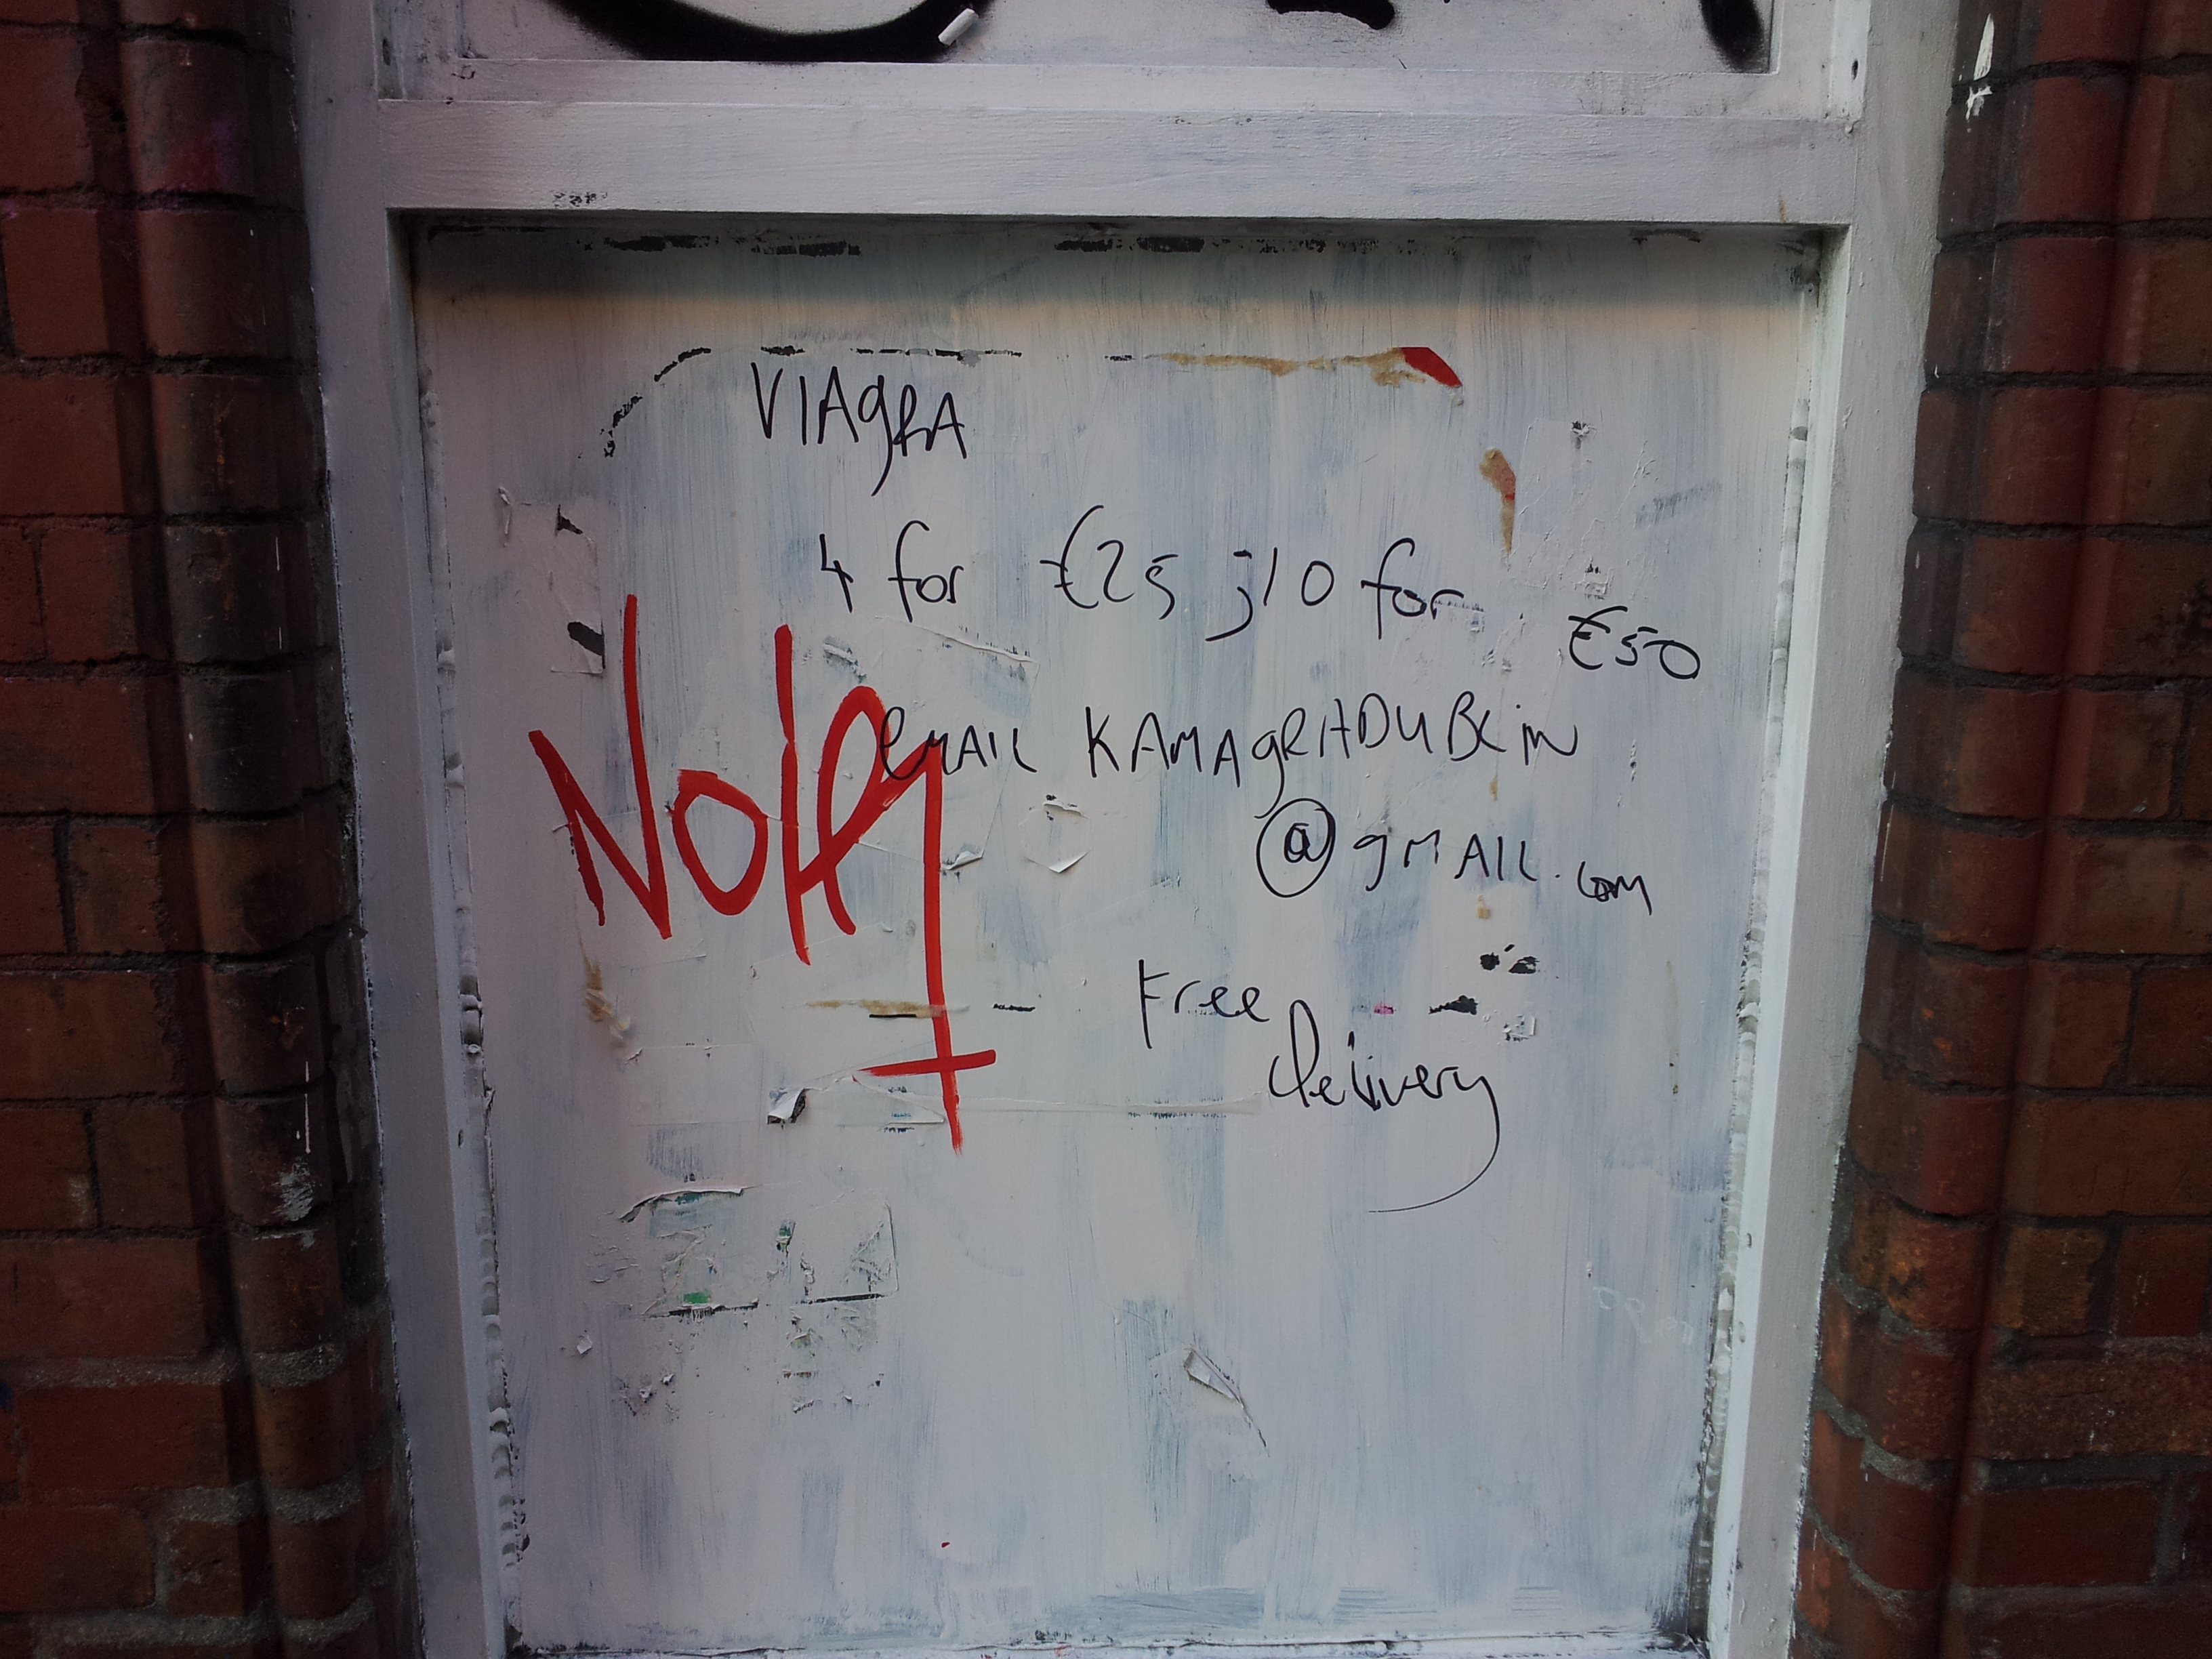 VIAgRA
4 for €25 ; 10 for €50
email KAMAgRADUBLiN
@gMAIL.com
Free
delivery